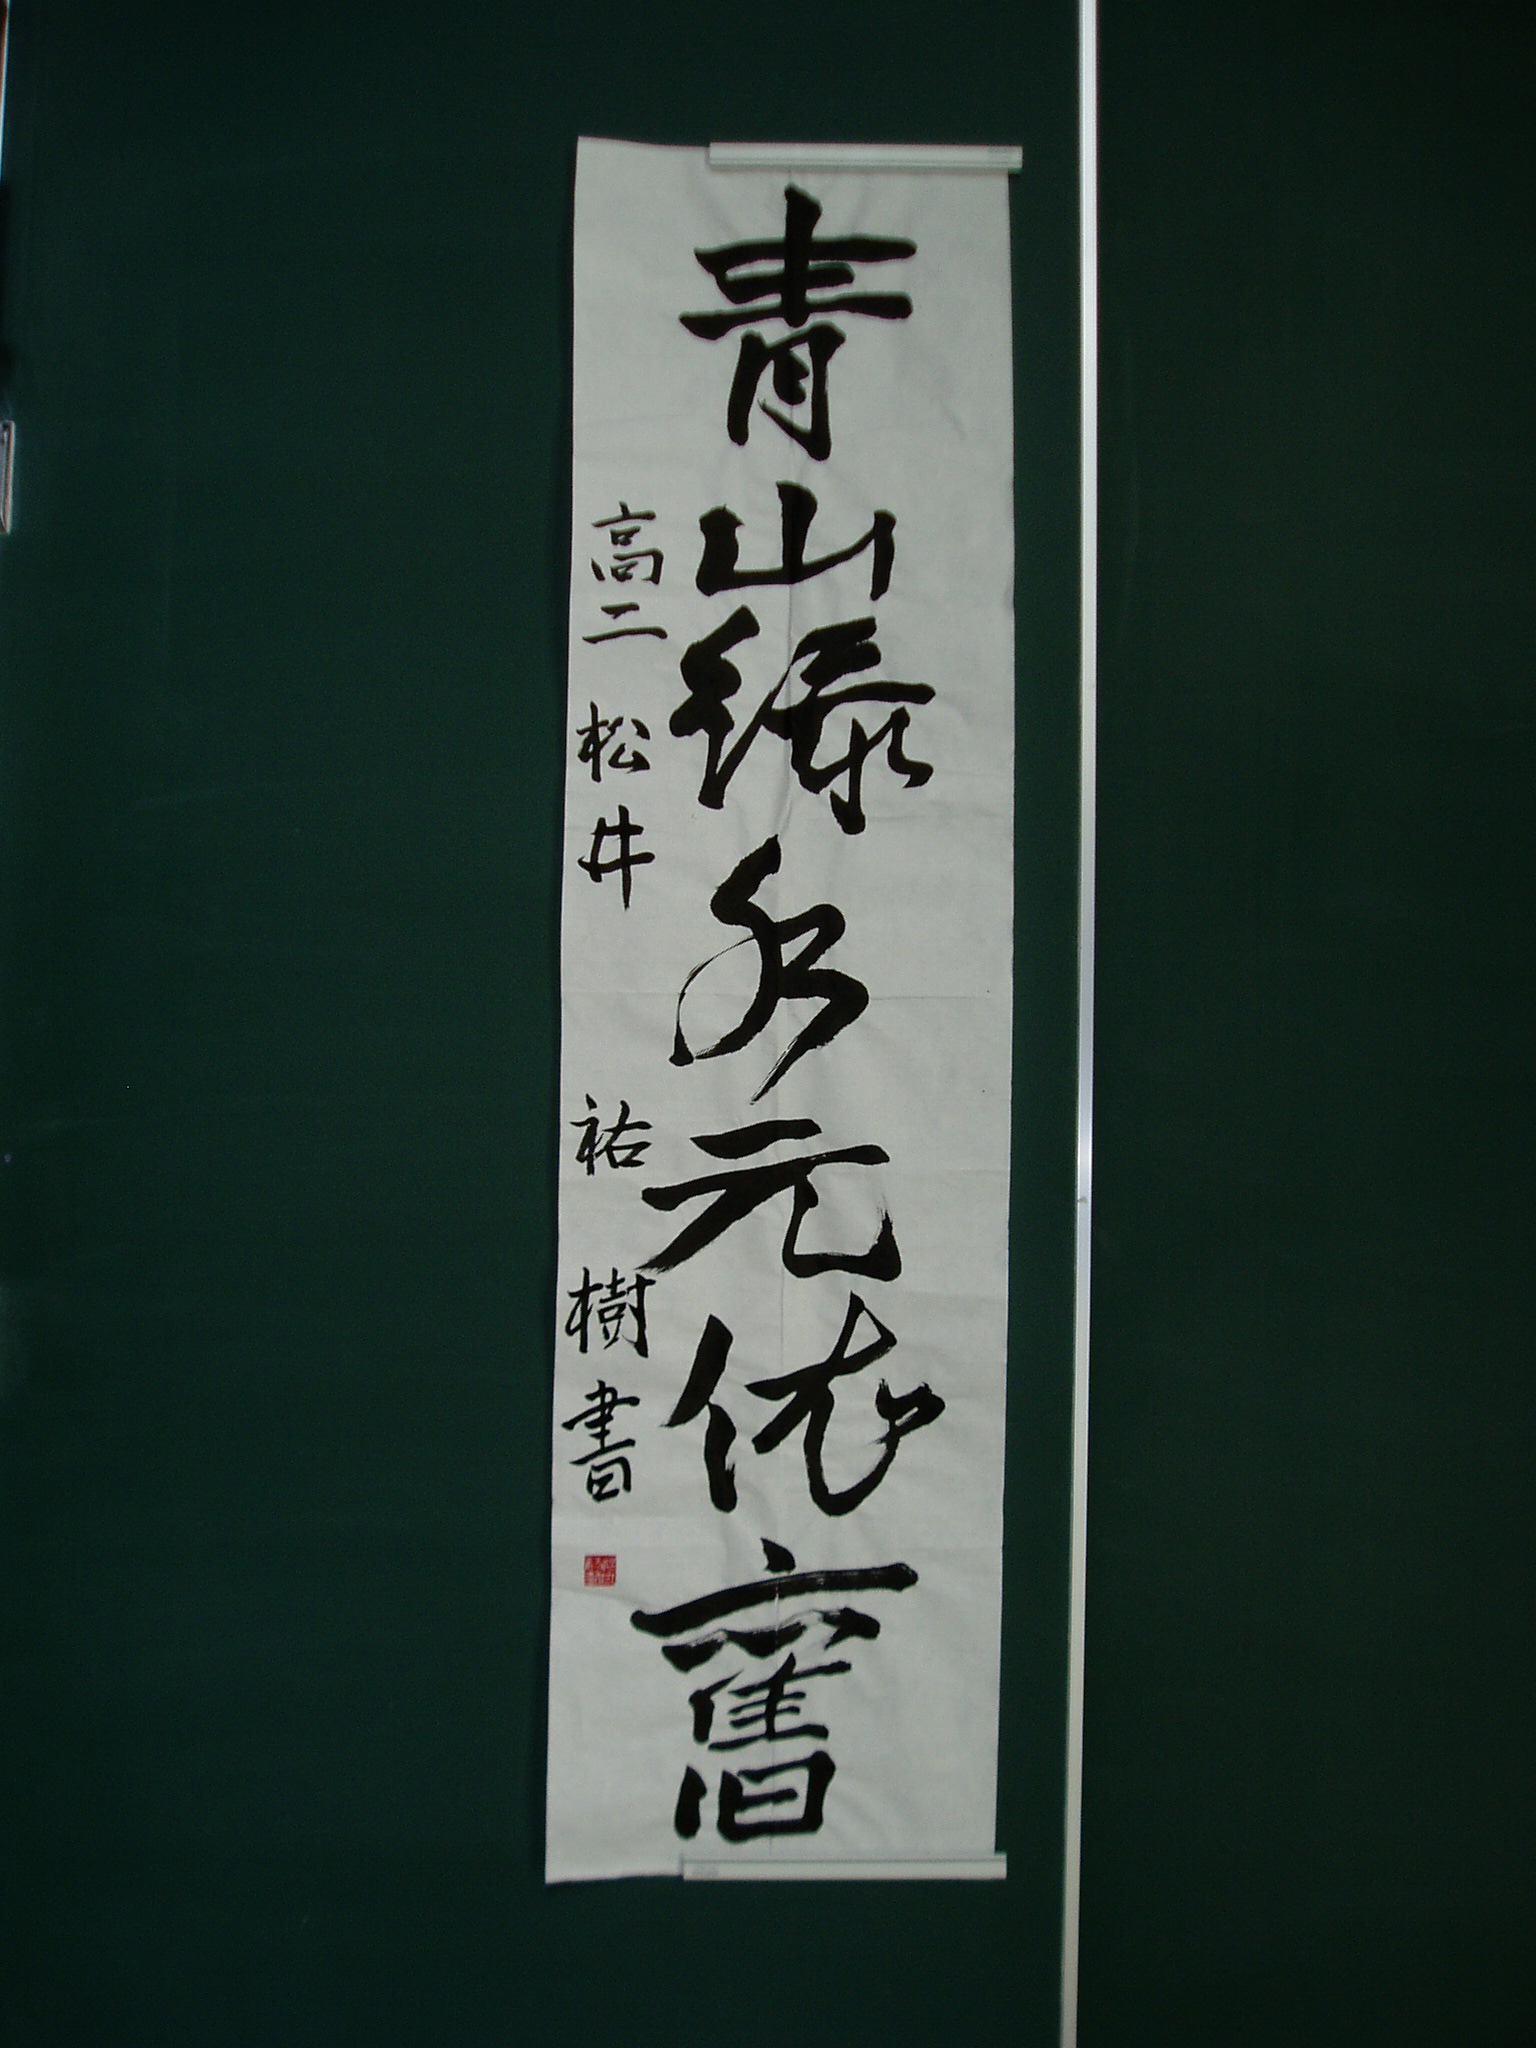 青山緑水元依舊
高二 松井 祐樹書